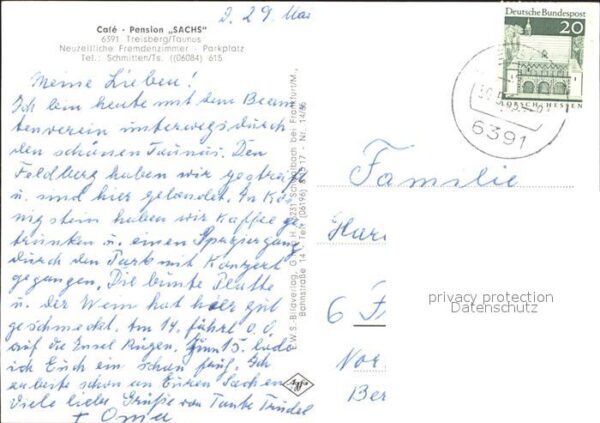 D. 29. Mai
Café - Pension „SACHS"
6391 Treisberg/Taunus
Neuzeitliche Fremdenzimmer - Parkplatz
Tel.: Schmitten/Ts. ((06084) 615
Meine Lieben!
Ich bin heute mit dem Beam
tenverein unterwegs durch
den schönen Taunus. Den
Feldberg haben wir gestreift
u. sind hier gelandet. In Kö
nigstein haben wir Kaffee ge
trunken u. einen Spaziergang
durch den Park mit Konzert
gegangen. Die bunte Platte
u. der Wein hat hier gut
geschmeckt. Am 14. fährt O. O.
auf die Insel Rügen. Zum 15. lade
ich Euch ein schon früh. Ich
arbeite schon an Euren Sachen.
Viele liebe Grüße von Tante Trudel
+ Oma
E.W.S. Bildverlag, G. H., 6231 Schwalbach bei Frankfurt/M.,
Bahnstraße 14 - Telf. (06196) - Nr. 14/86
Agfa
Deutsche Bundespost
20
LORSCH · HESSEN
6391
Familie
Har
6 F
Nor
Ber
privacy protection
Datenschutz